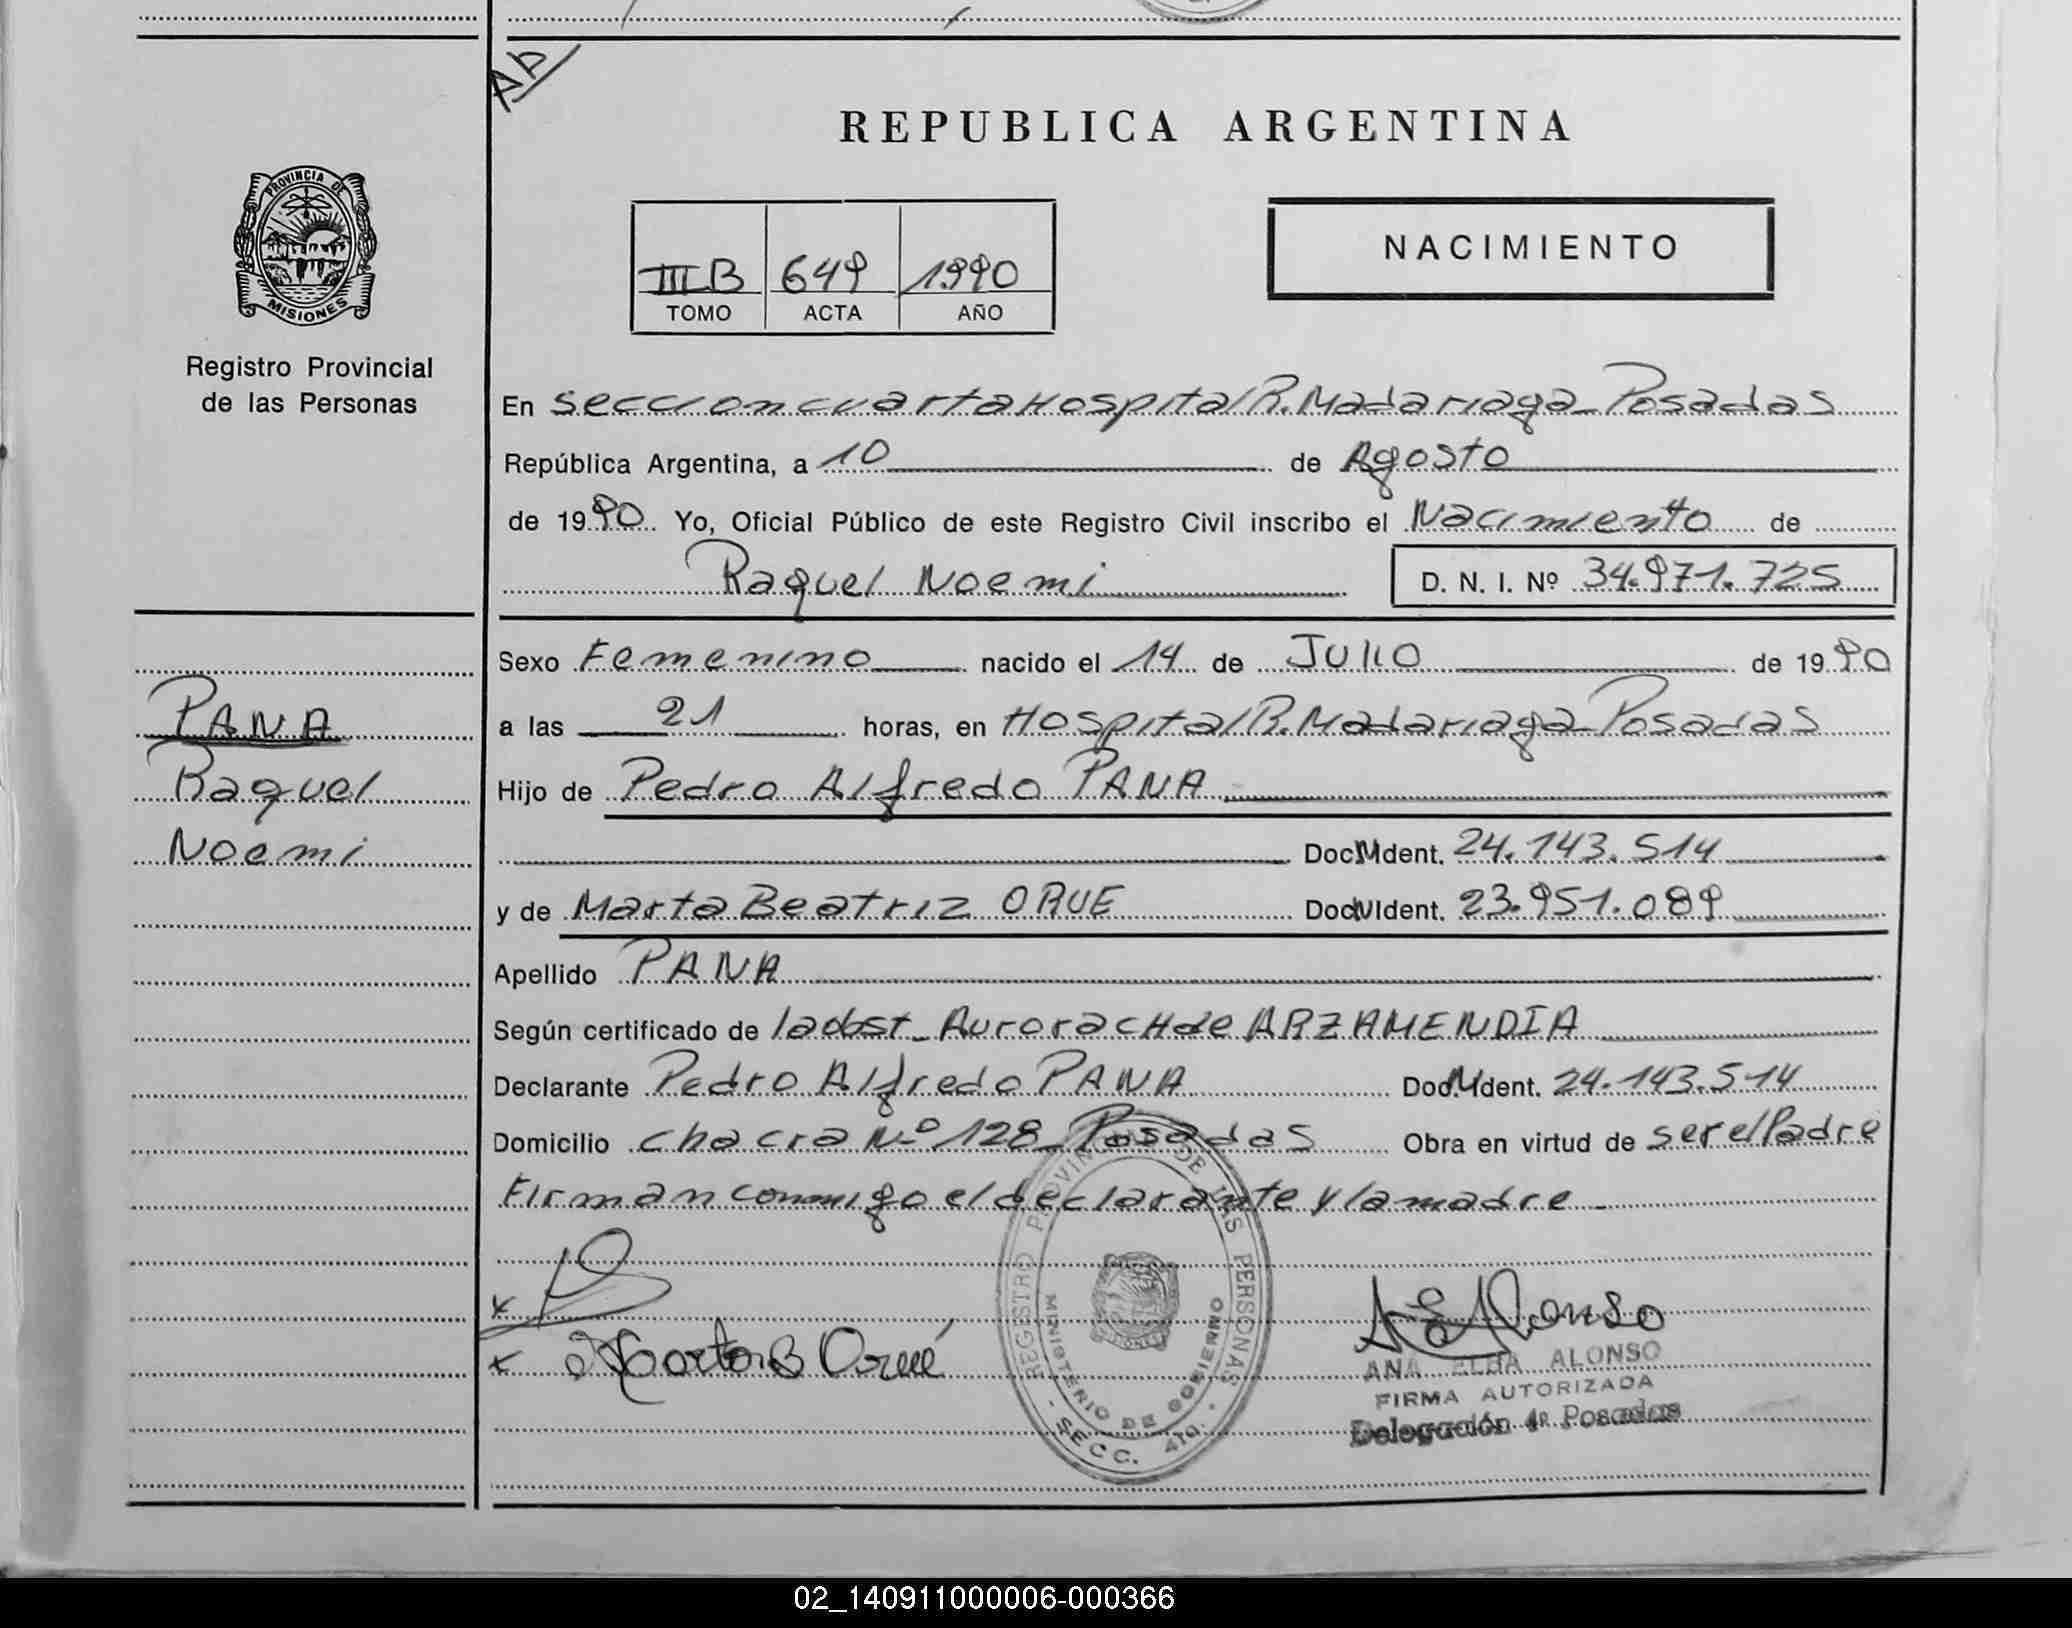 AD
REPUBLICA ARGENTINA
PROVINCIA DE
MISIONES
Registro Provincial
de las Personas
NACIMIENTO
III B 649 1990
TOMO ACTA AÑO
En Seccion cuarta Hospital R. Madariaga - Posadas
República Argentina, a 10 de Agosto
de 1990 Yo, Oficial Público de este Registro Civil inscribo el Nacimiento de
Raquel Noemi D. N. I. Nº 34.971.725
Sexo Femenino nacido el 14 de Julio de 1990
a las 21 horas, en Hospital R. Madariaga - Posadas
Hijo de Pedro Alfredo PANA
Doc. Ident. 24.143.514
y de Marta Beatriz ORUE Doc. Ident. 23.951.089
Apellido PANA
Según certificado de la obst - Aurora CH de ARZAMENDIA
Declarante Pedro Alfredo PANA Doc. Ident. 24.143.514
Domicilio chacra Nº 128 - Posadas Obra en virtud de ser el Padre
Firman conmigo el declarante y la madre -
PANA
Raquel
Noemi
x
x Marta B Orué
REGISTRO PROVINCIAL DE LAS PERSONAS
MINISTERIO DE GOBIERNO
SECC. 4TO.
A E Alonso
ANA ELBA ALONSO
FIRMA AUTORIZADA
Delegación 4ª Posadas
02_140911000006-000366